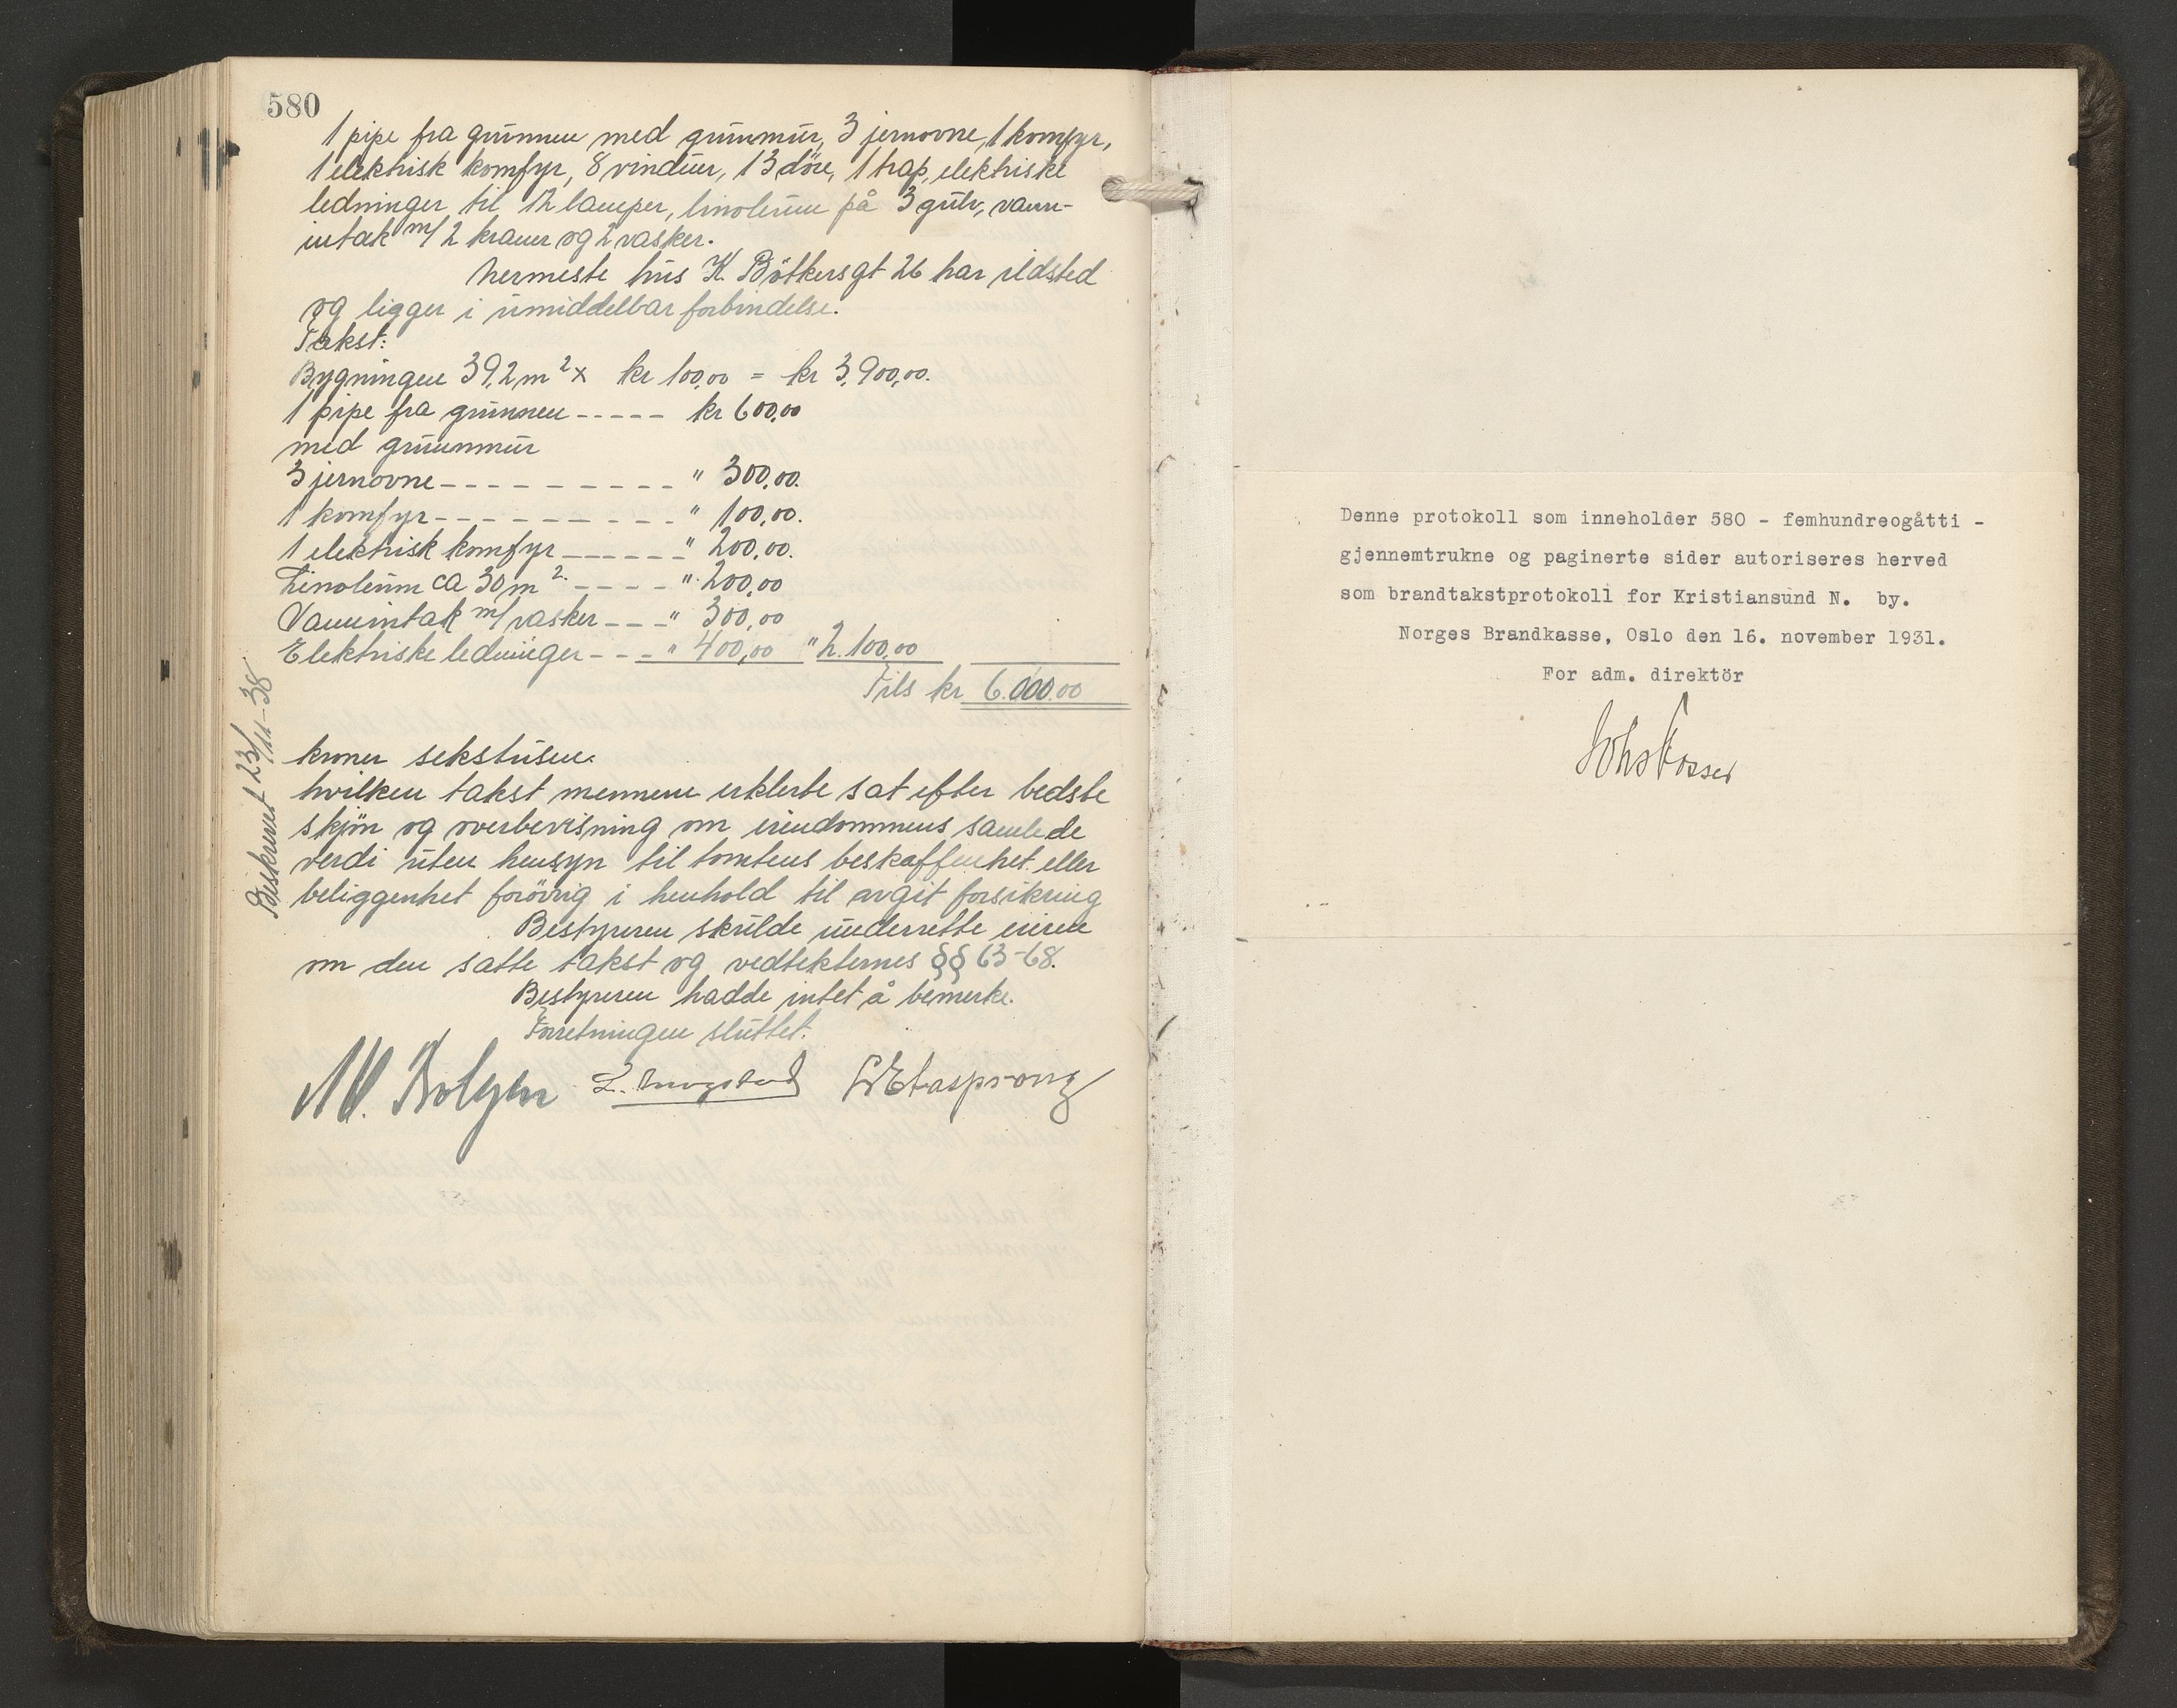 580
1 pipe fra grunnen med grunnmur, 3 jernovne, 1 komfyr,
1 elektrisk komfyr, 8 vinduer, 13 döre, 1 trap, elektriske
ledninger til 12 lamper, linoleum på 3 gulv, vann-
intak m/ 2 kraner og 2 vasker.
Nermeste hus K. Bötkersgt 26 har ildsted
og ligger i umiddelbar forbindelse.
Takst:
Bygningen 39,2 m² x kr 100,00 = kr 3.900,00.
1 pipe fra grunnen ----- kr 600,00
med grunnmur
3 jernovne ---------- " 300,00.
1 komfyr ---------- " 100,00.
1 elektrisk komfyr ------ " 200,00.
Linoleum ca 30 m² ---- " 200,00
Vannintak m/ vasker --- " 300,00
Elektriske ledninger --- " 400,00 " 2.100,00
Tils kr 6.000.00
Beskrevet 23/11-38
kroner sekstusen.
hvilken takst mennene erklerte sat efter bedste
skjön og overbevisning om eiendommens samlede
verdi uten hensyn til tomtens beskaffenhet eller
beliggenhet forövrig i henhold til avgit forsikring
Bestyreren skulde underrette eieren
om den satte takst og vedtekternes §§ 63-68.
Bestyreren hadde intet å bemerke.
Forretningen sluttet.
Denne protokoll som inneholder 580 - femhundreogåtti -
gjennemtrukne og paginerte sider autoriseres herved
som brandtakstprotokoll for Kristiansund N. by.
Norges Brandkasse, Oslo den 16. november 1931.
For adm. direktör